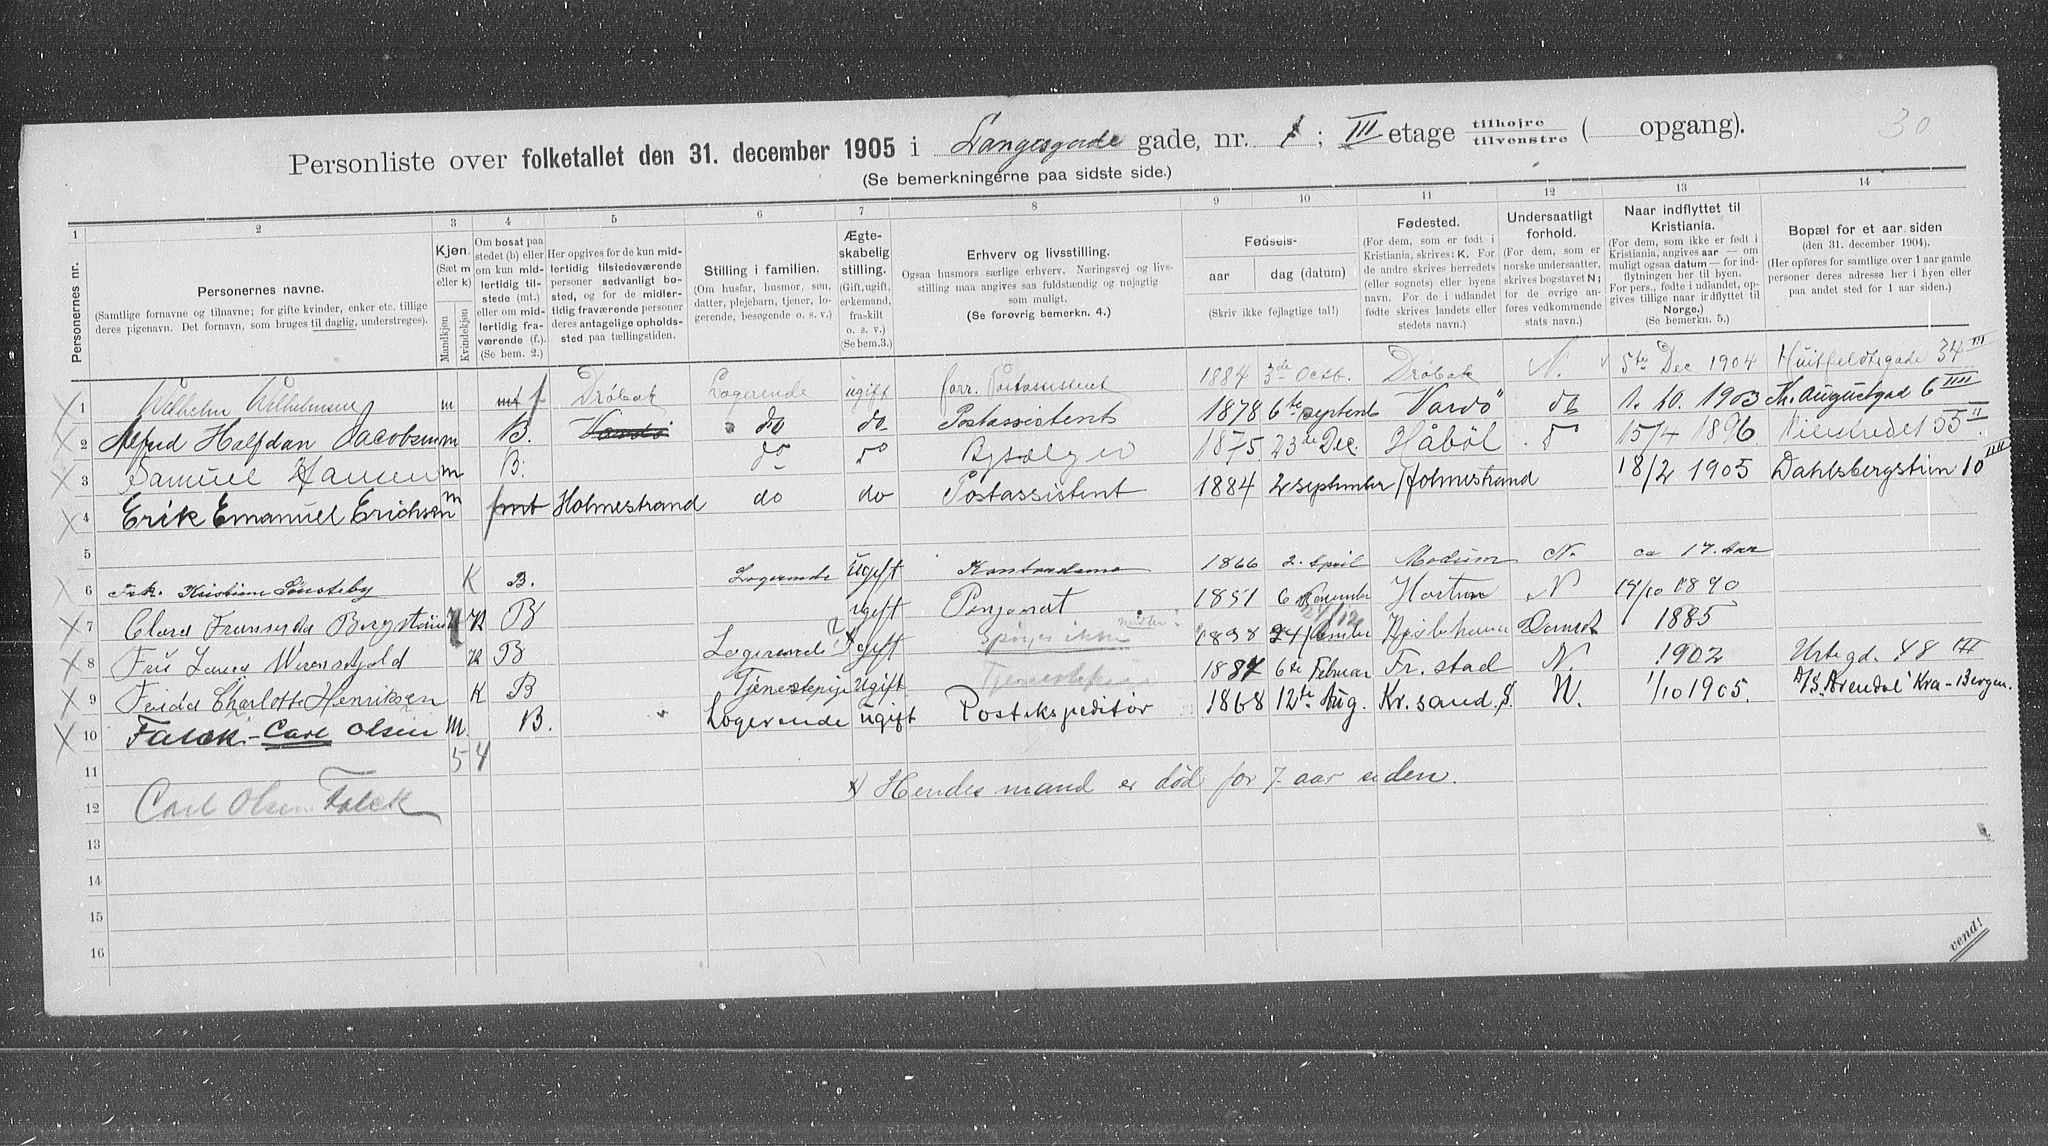 30
Personliste over folketallet den 31. december 1905 i Langesgade gade, nr. 1; III etage tilhøjre tilvenstre ( opgang).
(Se bemerkningerne paa sidste side.)
1 2 3 4 5 6 7 8 9 10 11 12 13 14
Personernes nr.
Personernes navne.
(Samtlige fornavne og tilnavne; for gifte kvinder, enker etc. tillige deres pigenavn. Det fornavn, som bruges til daglig, understreges).
Kjøn.
(Sæt m eller k)
Mandkjøn
Kvindekjøn
Om bosat paa stedet (b) eller om kun midlertidig tilstede (mt.) eller om midlertidig fraværende (f.). (Se bem. 2.)
Her opgives for de kun midlertidig tilstedeværende personer sedvanligt bosted, og for de midlertidig fraværende personer deres antagelige opholdssted paa tællingstiden.
Stilling i familien.
(Om husfar, husmor, søn, datter, plejebarn, tjener, logerende, besøgende o. s. v.)
Ægteskabelig stilling.
(Gift, ugift, enkemand, fraskilt o. s. v.) (Se bem. 3.)
Erhverv og livsstilling.
Ogsaa husmors særlige erhverv. Næringsvej og livsstilling maa angives saa fuldstændig og nøjagtig som muligt.
(Se forøvrig bemerkn. 4.)
Fødsels-
aar dag (datum)
(Skriv ikke fejlagtige tal!)
Fødested.
(For dem, som er født i Kristiania, skrives: K. For de andre skrives herredets (eller sognets) eller byens navn. For de i udlandet fødte skrives landets eller stedets navn.)
Undersaatligt forhold.
(For dem, som er norske undersaatter, skrives bogstavet N; for de øvrige anføres vedkommende stats navn.)
Naar indflyttet til Kristiania.
(For dem, som ikke er født i Kristiania, angives aar — om muligt ogsaa datum — for indflytningen her til byen. For pers., fødte i udlandet, opgives tillige naar indflyttet til Norge.)
(Se bemerkn. 5.)
Bopæl for et aar siden
(den 31. december 1904).
(Her opføres for samtlige over 1 aar gamle personer deres adresse her i byen eller paa andet sted for 1 aar siden.)
1 Wilhelm Wilhelmsen m mt f Drøbak Logerende ugift forr. Postassistent 1884 3de Octb. Drøbak N. 5te Dec 1904 Huitfeldtsgade 34 III
2 Alfred Halfdan Jacobsen m B. Vardø do do Postassistent 1878 6te septemb Vardø do 1. 10. 1903 Kr. Augustgad 6 IIII
3 Samuel Hansen m B. do do 1875 23de Dec. Håbøl do 15/4 1896 55 II
4 Erik Emanuel Erichsen m f mt Holmestrand do do Postassistent 1884 2 september Holmestrand 18/2 1905 Dahlsbergstien 10 IIII
5
6 Frk. Kristiane Sønsteby K B. Logerende Ugift Kontordame 1866 2. April Modum N. ca 17. Aar
7 Clara Fransiska K B ugift Pensjonat 1851 6 November Horten N 14/10 1890
8 K B Logerende x gift spørges ikke midler 1838 24/12 Danmark 1885
9 Charlotte Henriksen K B Tjenestepige Ugift 1884 6te Februar Fr. stad N. 1902 Urtegd. 48 III
10 Falck - Carl Olsen m B. Logerende ugift Postekspeditør 1868 12te Aug. Kr. sand. S. N. 1/10 1905. D/S "Arendal" Kra - Bergen.
5 4
11
x) Hendes mand er død for 7 aar siden.
12 Carl Olsen Falck
13
14
15
16
vend!